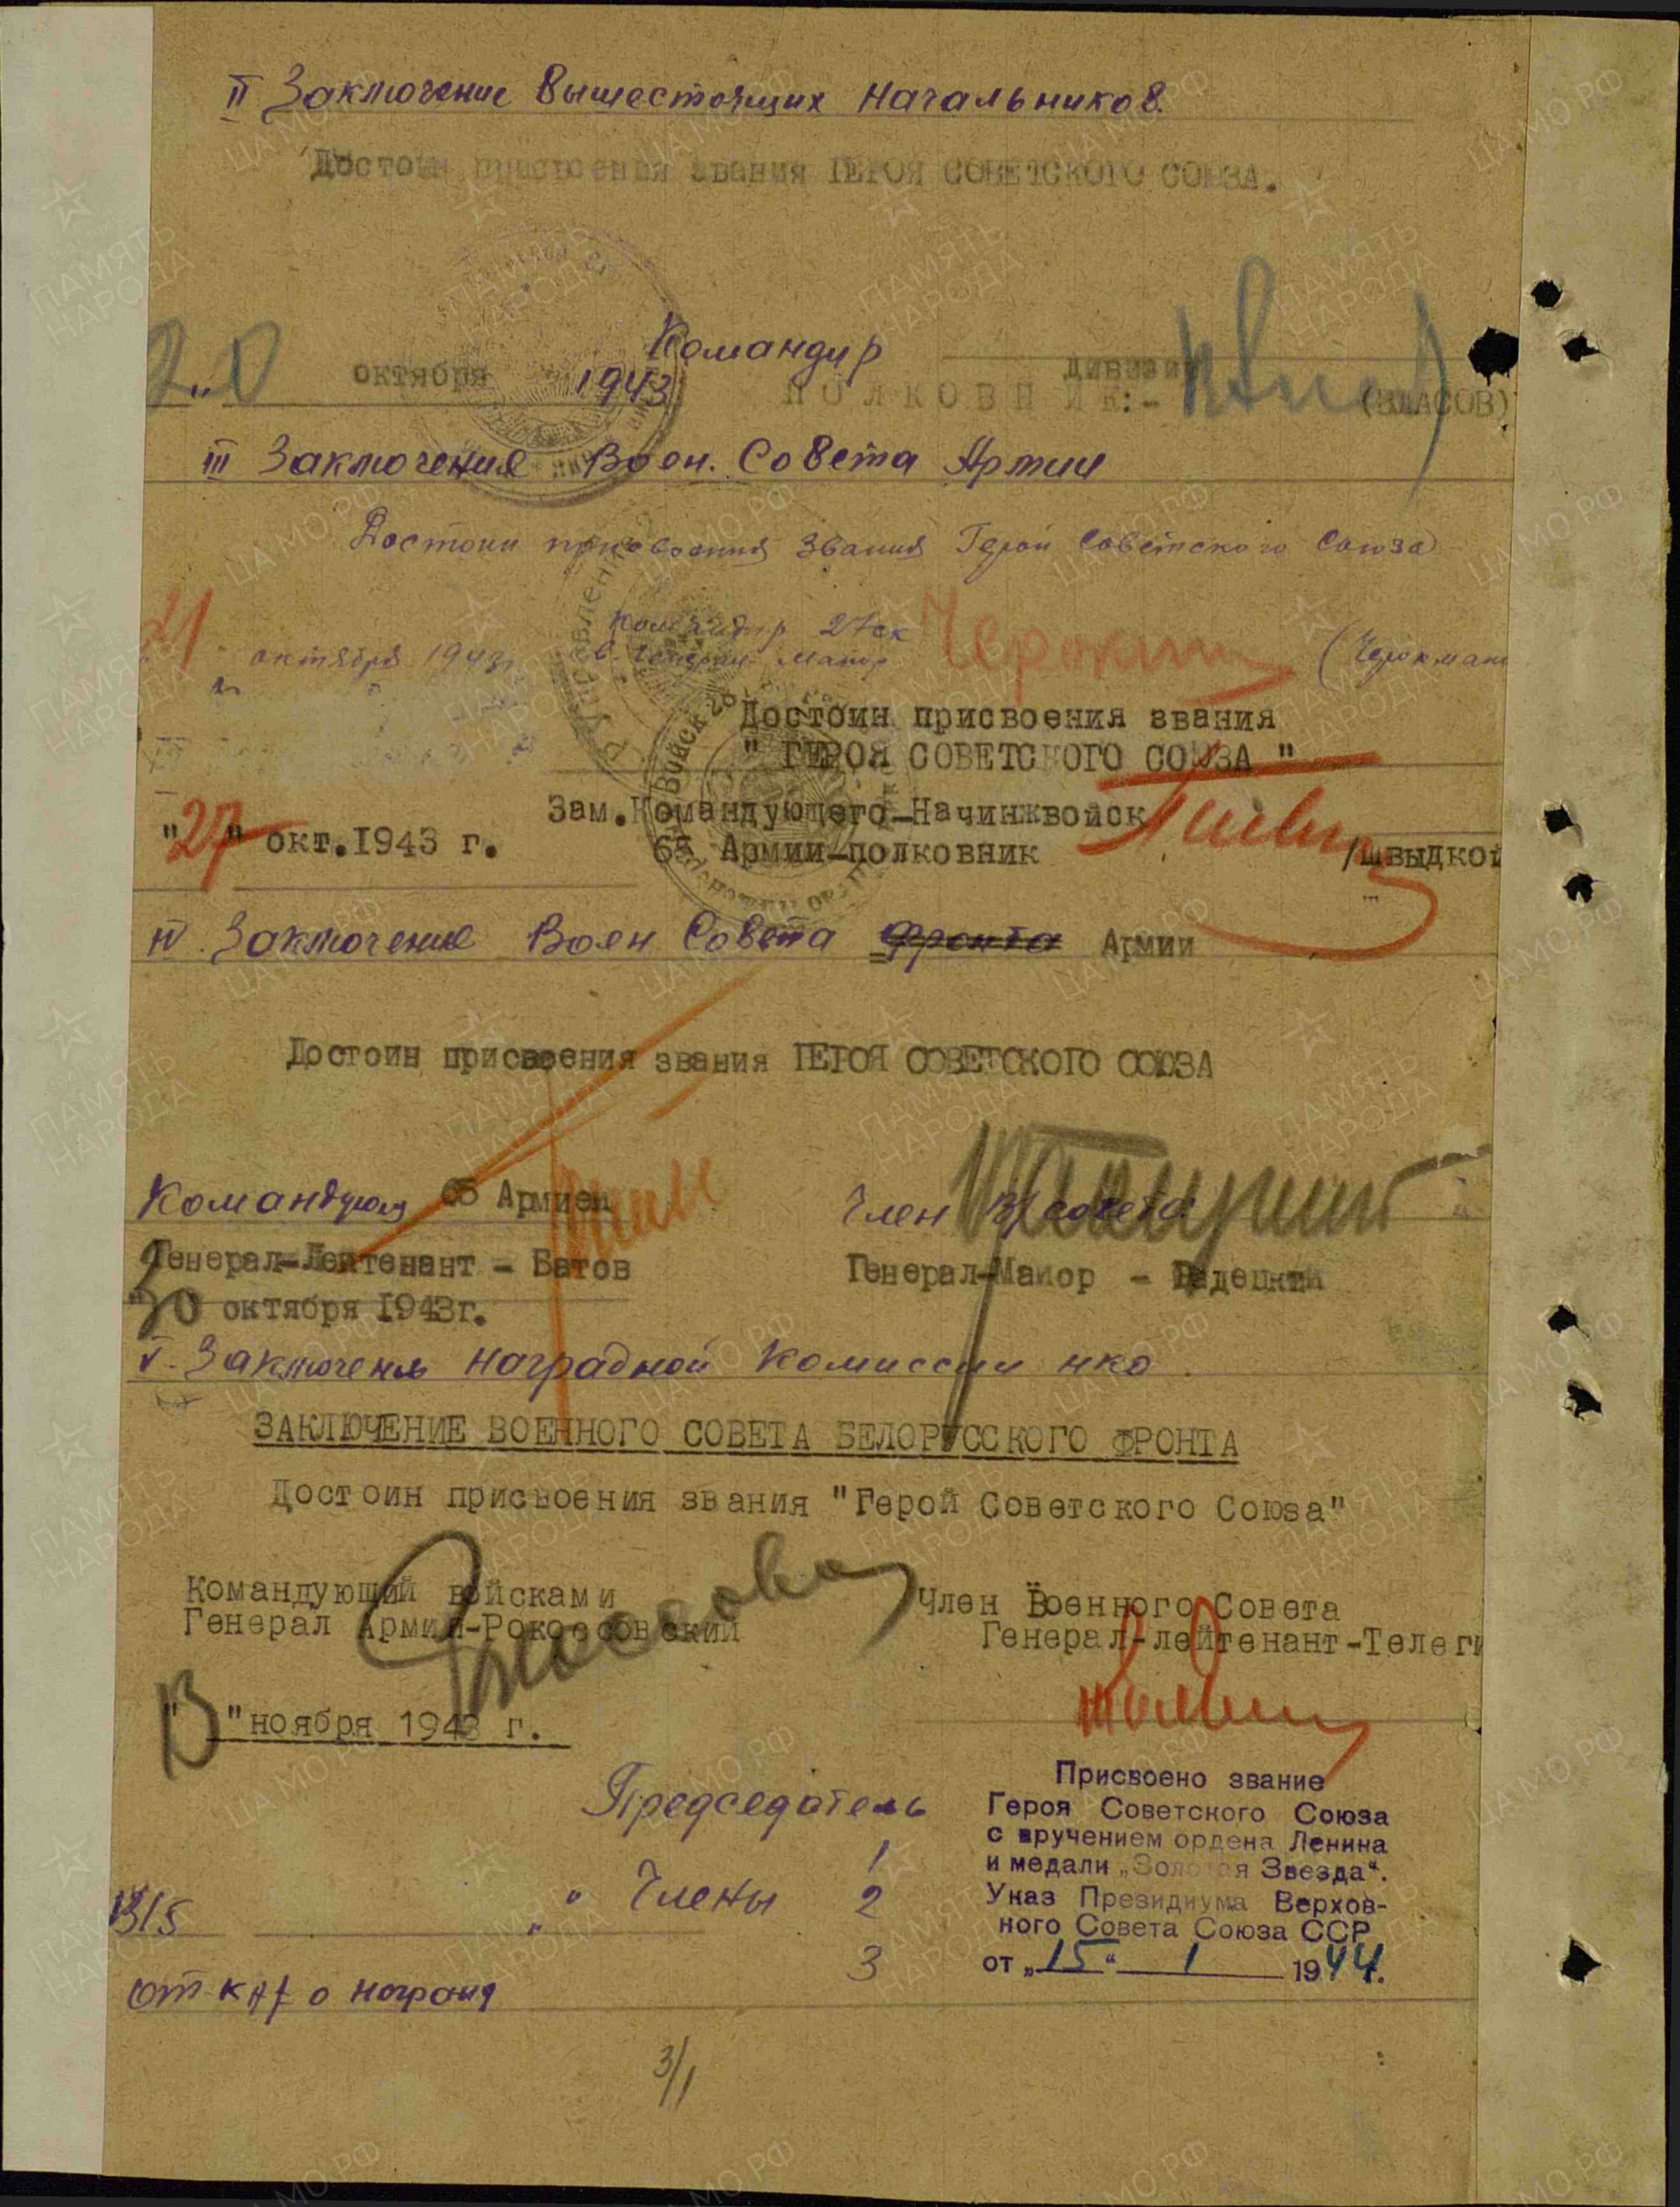 II Заключение вышестоящих начальников.
Достоин присвоения звания ГЕРОЯ СОВЕТСКОГО СОЮЗА.
Командир дивизии
20 октября 1943 ПОЛКОВНИК:- (ВЛАСОВ)
III Заключения Воен. Совета Армии
Достоин присвоения звания Герой Советского Союза
Командир 27 ск
21 октября 1943г. Генерал Майор (Черокман
Достоин присвоения звания
" ГЕРОЯ СОВЕТСКОГО СОЮЗА "
Зам.Командующего-Начинжвойск
"27" окт.1943 г. 65 Армии-полковник /Швыдкой
IV. Заключение Воен Совета фронта Армии
Достоин присвоения звания ГЕРОЯ СОВЕТСКОГО СОЮЗА
Командующ 65 Армией Член В/совета
Генерал-Лейтенант - Батов Генерал-Майор - Радецкий
30 октября 1943г.
V. Заключень наградной комиссии нко.
ЗАКЛЮЧЕНИЕ ВОЕННОГО СОВЕТА БЕЛОРУССКОГО ФРОНТА
Достоин присвоения звания "Герой Советского Союза"
Командующий войсками Член Военного Совета
Генерал Армии-Рокоссовский Генерал-лейтенант-Телеги
"13"ноября 1943 г.
Председатель
Присвоено звание
Героя Советского Союза
с вручением ордена Ленина
и медали „Золотая Звезда“.
Указ Президиума Верхов-
ного Совета Союза ССР
от „15“ 1 1944г.
1
" Члены 2
3
отм-ка о награжд
3/1